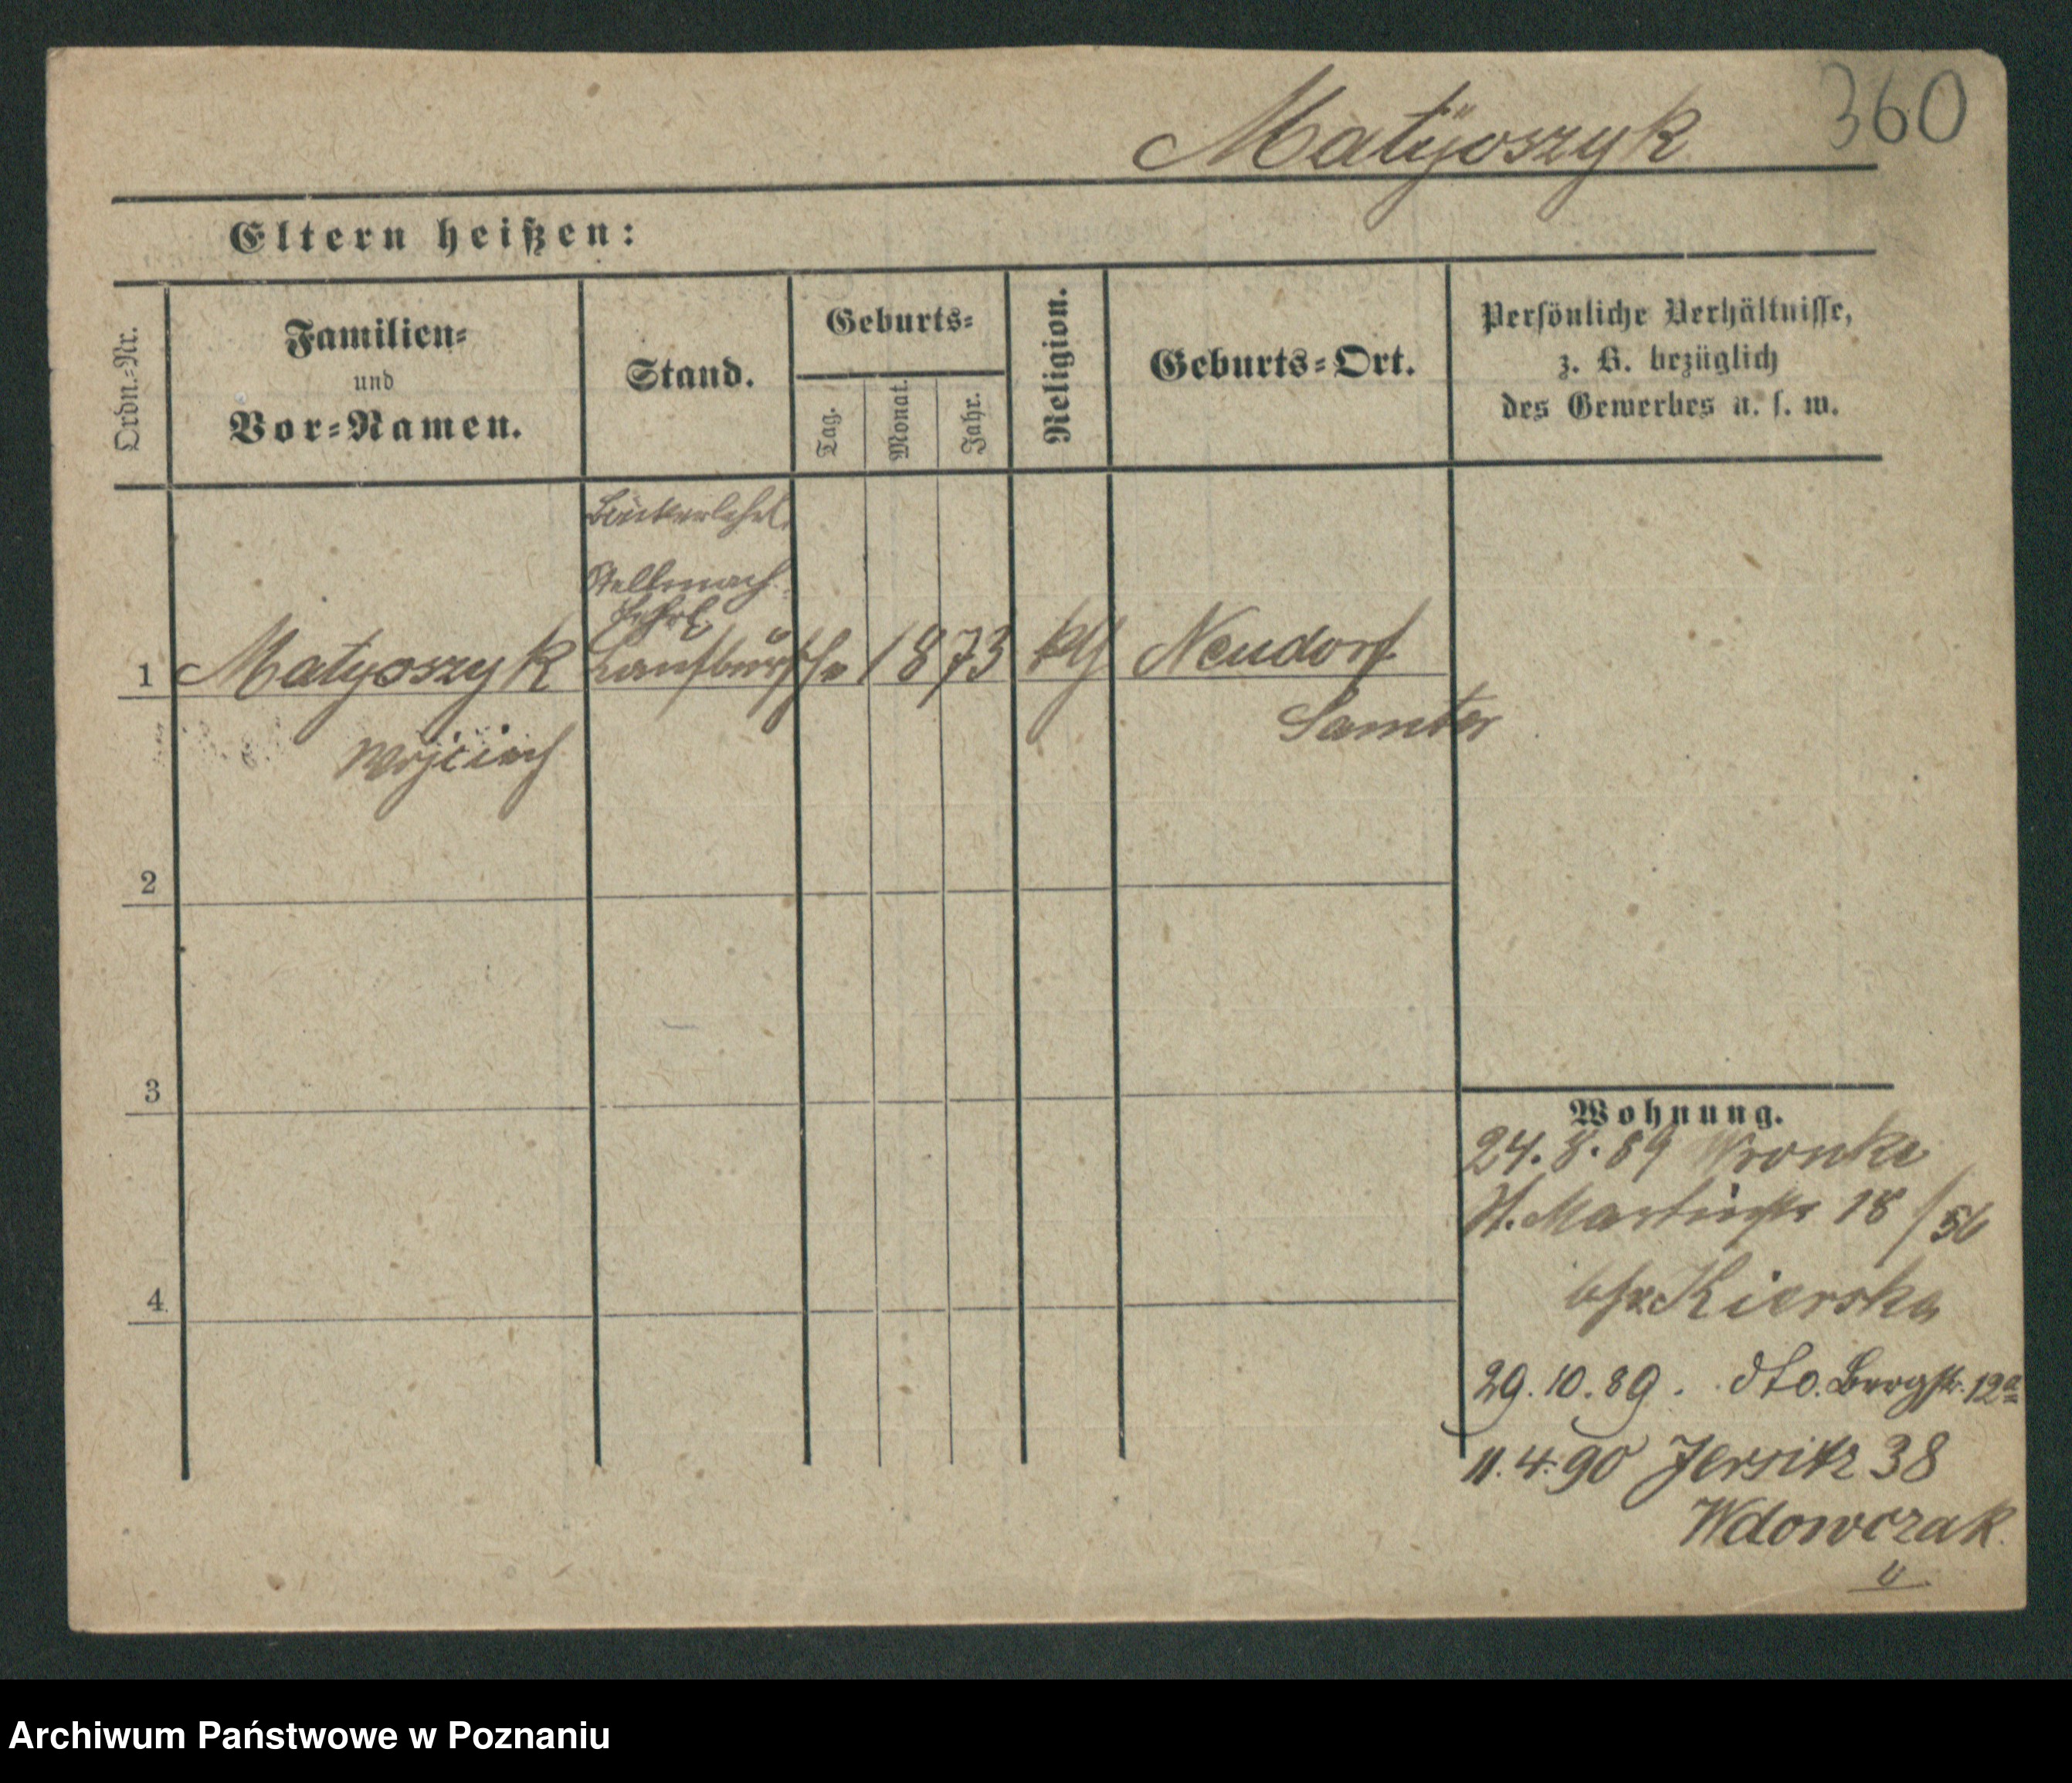 360
Matÿoszyk
Eltern heißen:
Ordn.=Nr.
Familien=
und
Vor=Namen.
Stand.
Geburts=
Tag.
Monat.
Jahr.
Religion.
Geburts=Ort.
Persönliche Verhältnisse,
z. B. bezüglich
des Gewerbes u. s. w.
Bäckerlehrl.
Stellmach.
Lehrl.
1 Matyoszyk Laufbursche 1873 kth Neudorf
Samter
Wojciech
2
3
4
Wohnung.
24. 8. 89 Wronke
St. Martinstr 18/56
Kierska
29. 10. 89. dto. Bergstr. 12a
11. 4. 90 Jersitz 38
Wdowczak.
Archiwum Państwowe w Poznaniu